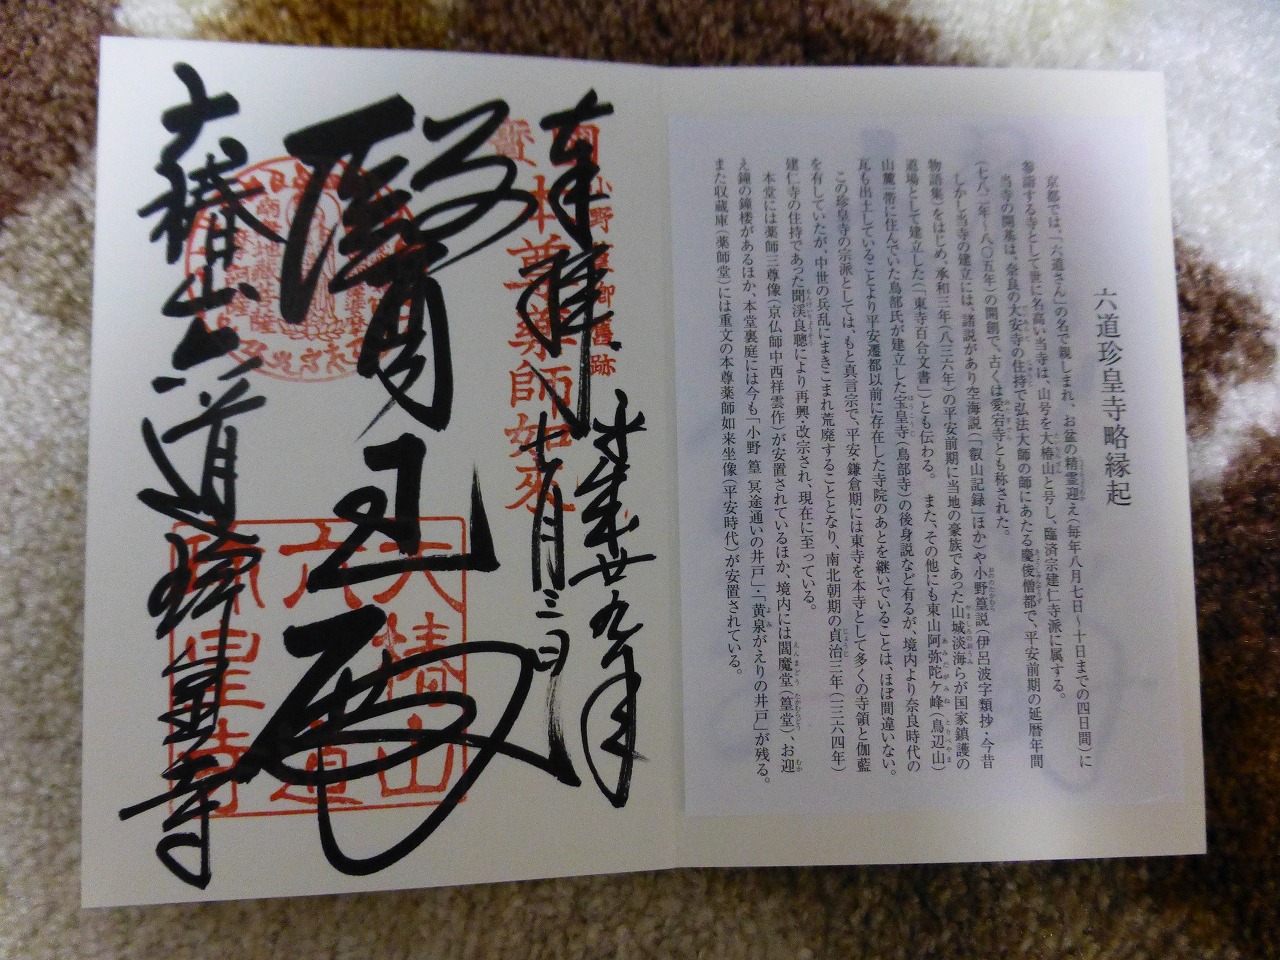 六道珍皇寺略縁起
京都では、「六道さん」の名で親しまれ、お盆の精霊迎え(毎年八月七日~十日までの四日間)に
参詣する寺として世に名高い当寺は、山号を大椿山と号し、臨済宗建仁寺派に属する。
当寺の開基は、奈良の大安寺の住持で弘法大師の師にあたる慶俊僧都で、平安前期の延暦年間
(七八二年~八〇五年)の開創で、古くは愛宕寺とも称された。
しかし当寺の建立には、諸説があり空海説(「叡山記録」ほか)や小野篁説(伊呂波字類抄・今昔
物語集)をはじめ、承和三年(八三六年)の平安前期に当地の豪族であった山城淡海らが国家鎮護の
道場として建立した(「東寺百合文書」)とも伝わる。 また、その他にも東山阿弥陀ケ峰(鳥辺山)
山麓一帯に住んでいた鳥部氏が建立した宝皇寺(鳥部寺)の後身説など有るが、境内より奈良時代の
瓦も出土していることより平安遷都以前に存在した寺院のあとを継いでいることは、ほぼ間違いない。
この珍皇寺の宗派としては、もと真言宗で、平安・鎌倉期には東寺を本寺として多くの寺領と伽藍
を有していたが、中世の兵乱にまきこまれ荒廃することとなり、南北朝期の貞治三年(一三六四年)
建仁寺の住持であった聞渓良聰により再興・改宗され、現在に至っている。
本堂には薬師三尊像(京仏師中西祥雲作)が安置されているほか、境内には閻魔堂(篁堂)、お迎
え鐘の鐘楼があるほか、本堂裏庭には今も「小野 篁 冥途通いの井戸」・「黄泉がえりの井戸」が残る。
また収蔵庫(薬師堂)には重文の本尊薬師如来坐像(平安時代)が安置されている。
奉拝 平成廿九年
七月三日
本尊薬師如來
醫王殿
大椿山六道珍皇寺
大椿山
六道
珍皇寺